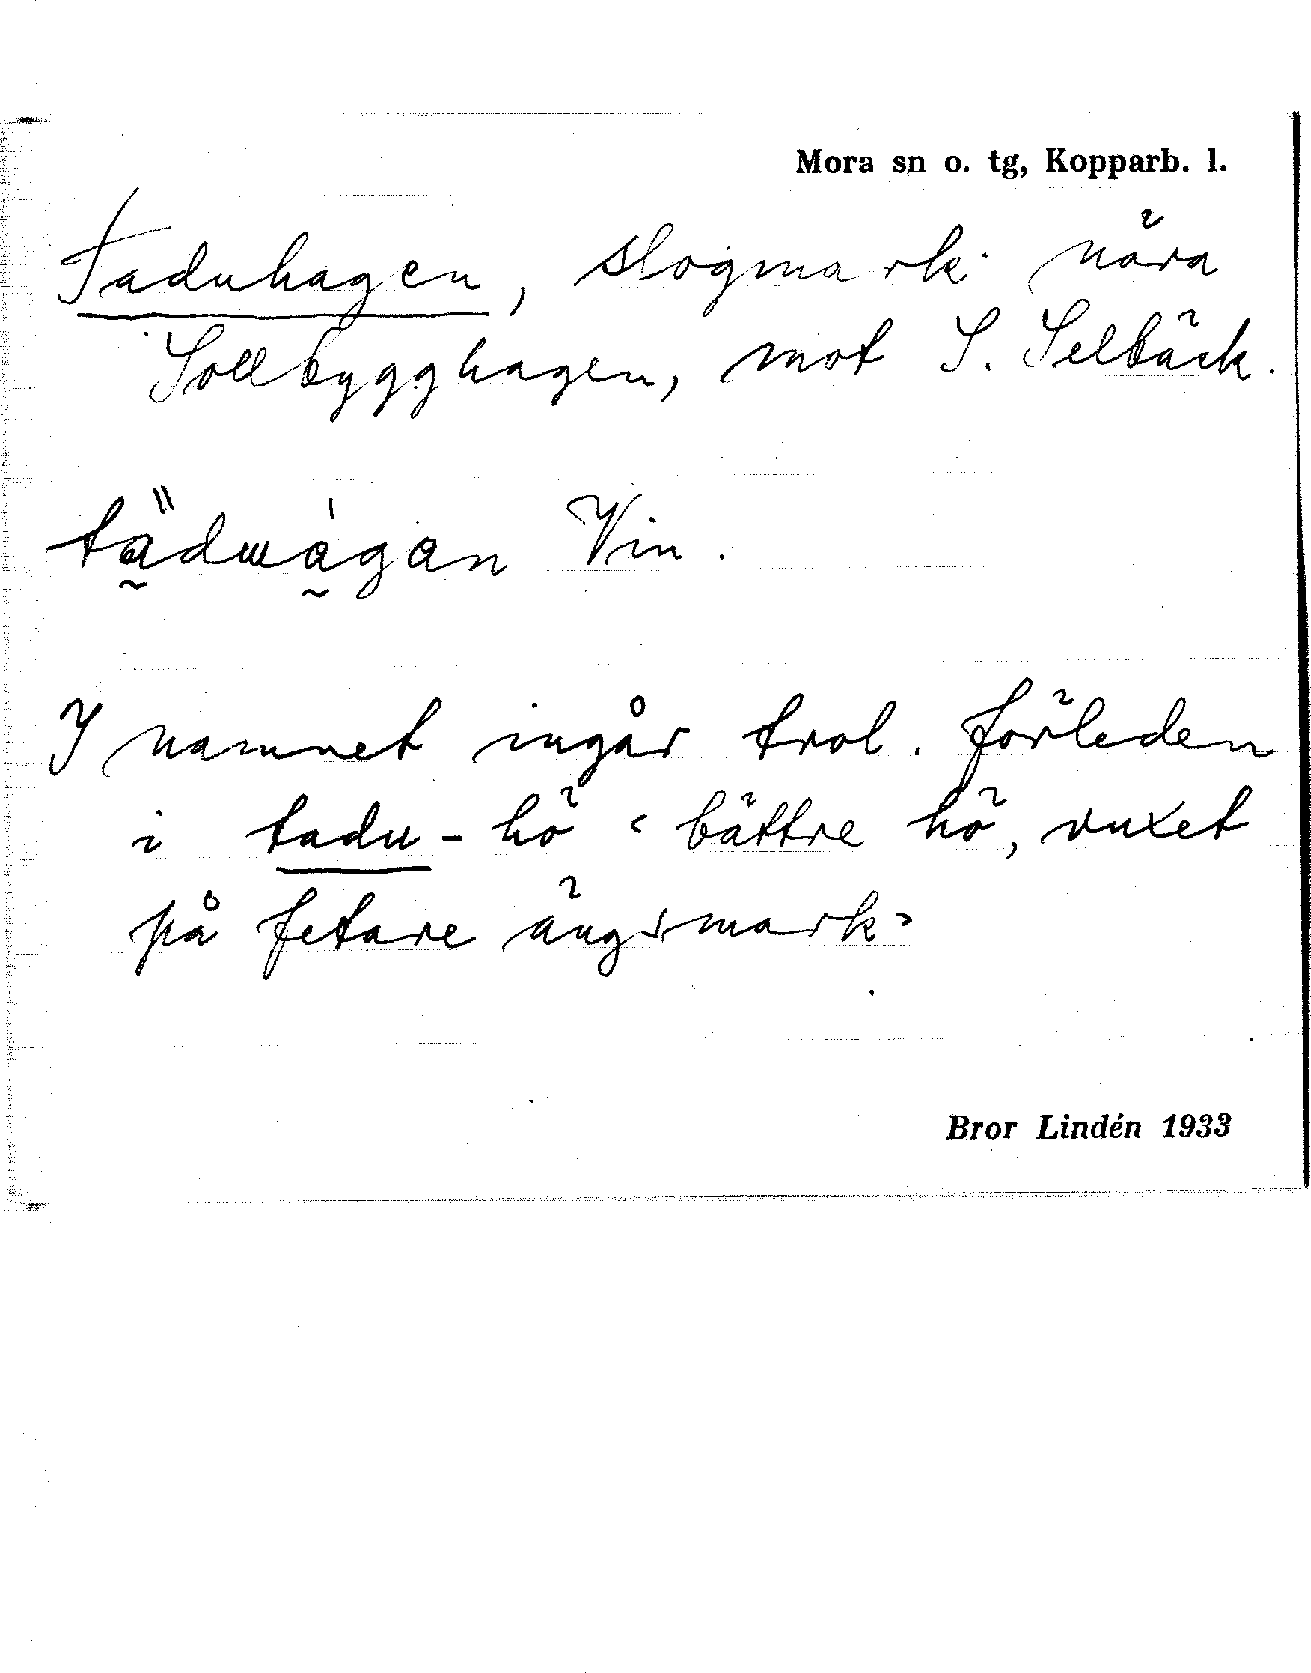 Mora sn o. tg, Kopparb. l.
Taduhagen, slogmark nära
Sollbygghagen, mot S. Selbäck.
tädwàgan Vin.
I namnet ingår trol. förleden
i tadu-hö ‹bättre hö, vuxet
på fetare ängsmark›
Bror Lindén 1933